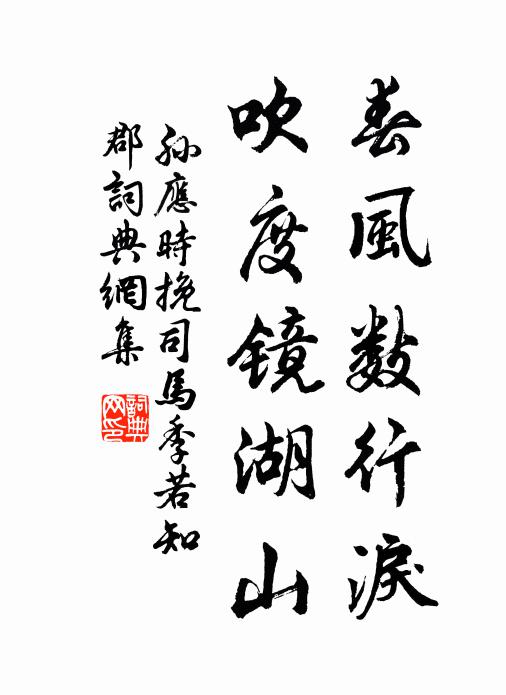 春風數行淚
吹度镜湖山
孫應時挽司馬季若知
郡詞典網集
詞典
网印